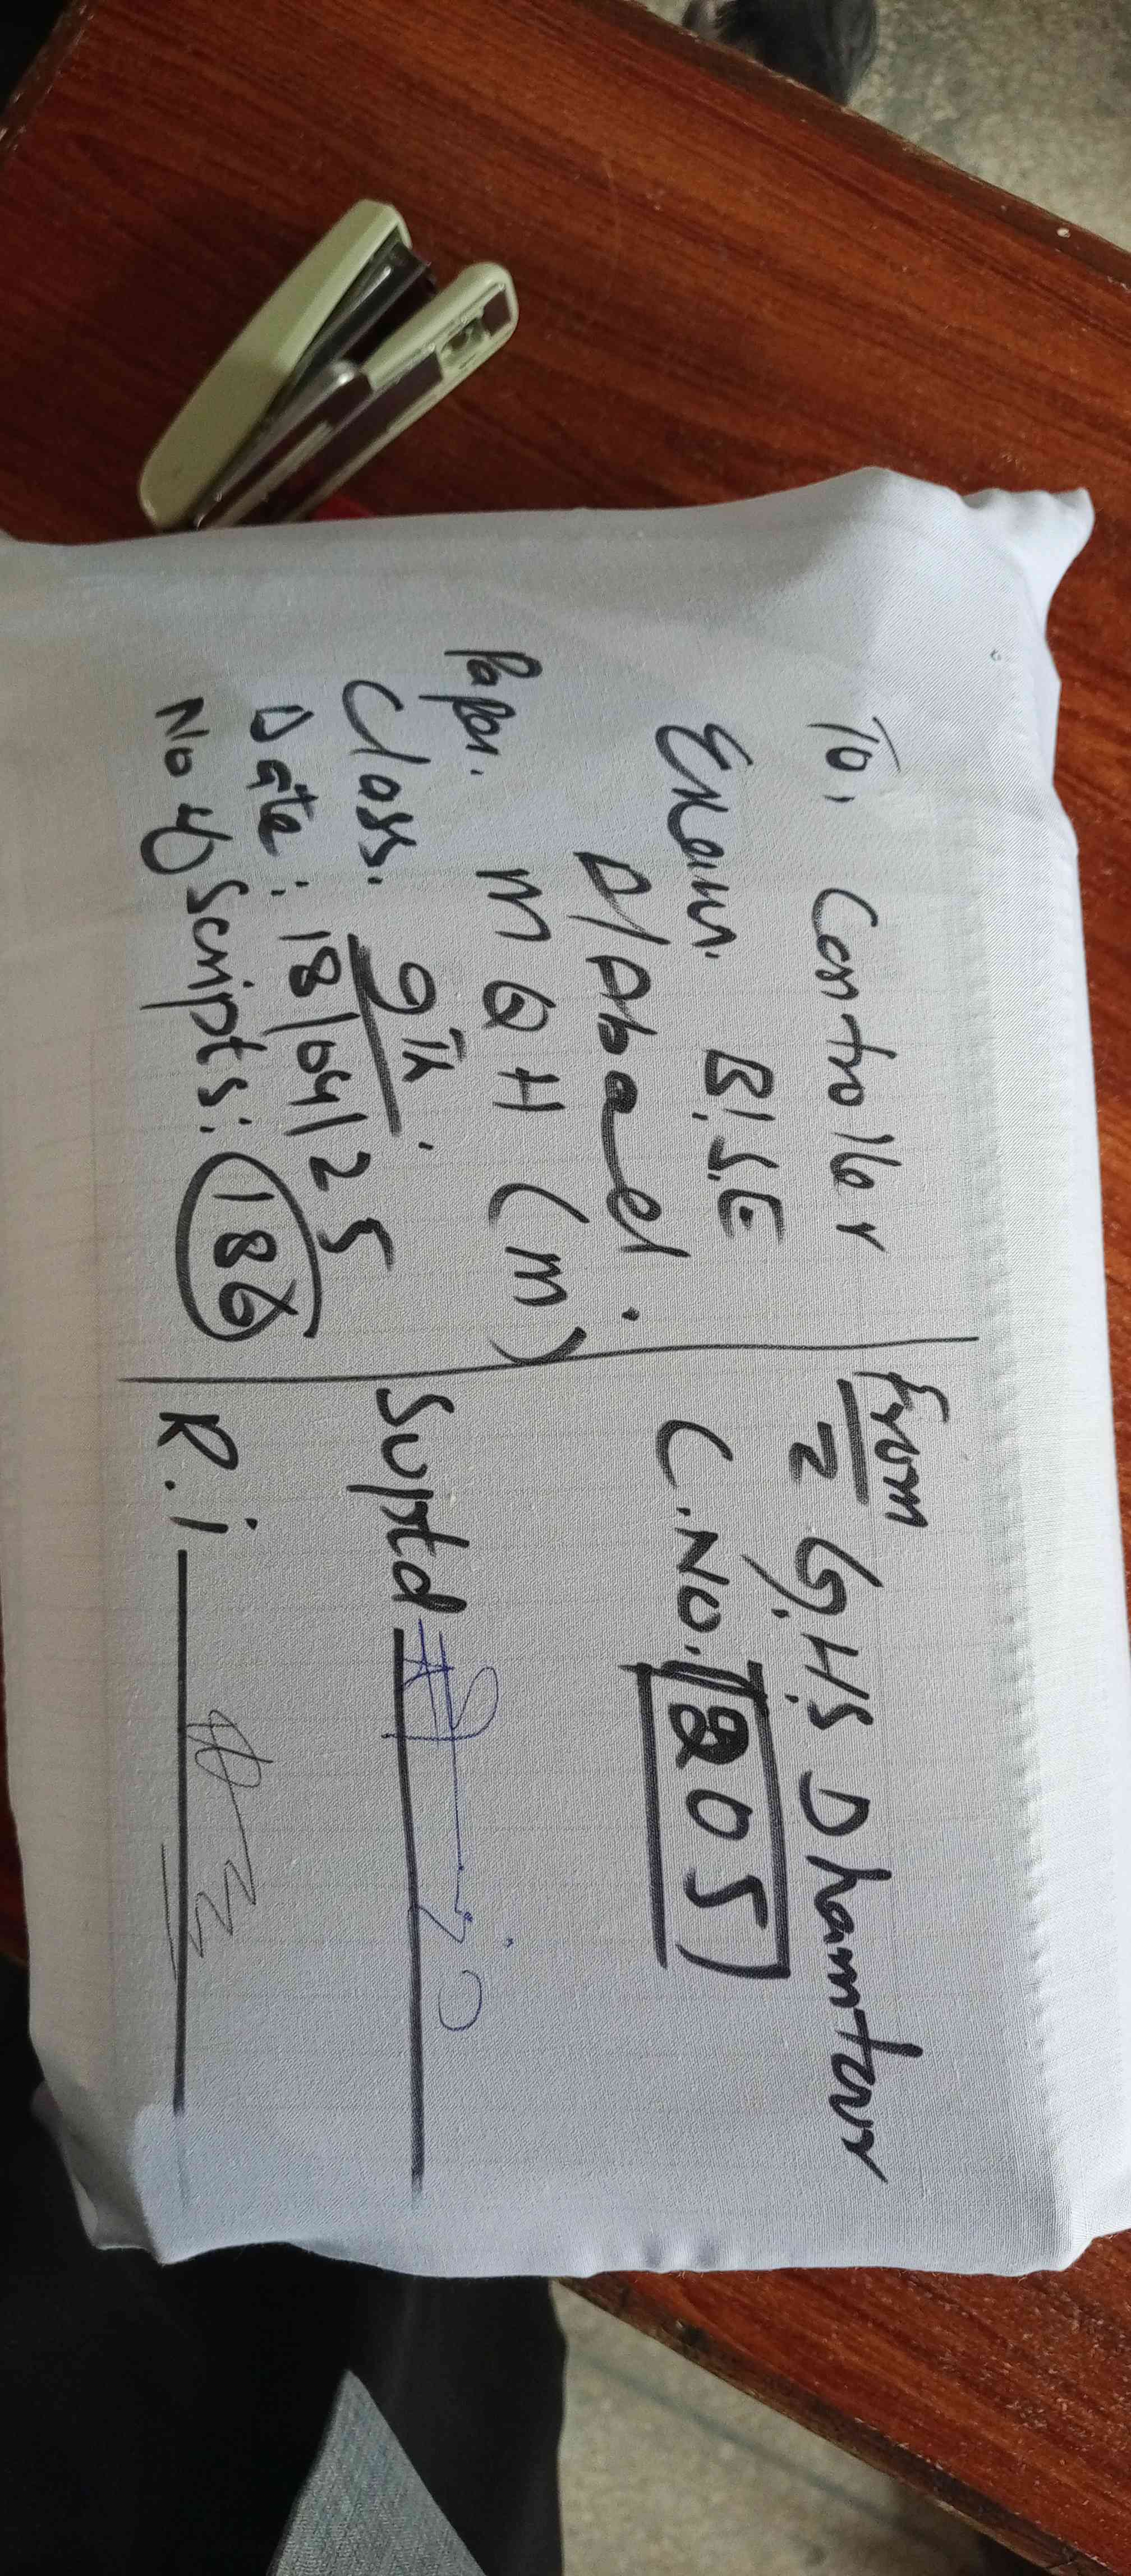 To, Controller
Exam. B.I.S.E
A/Abad.
Paper. M Q H (M)
Class. 9th.
Date: 18/04/25
No of Scripts: 186
From
G.H.S Dhamtour
C.No. 205
Suptd
R.i